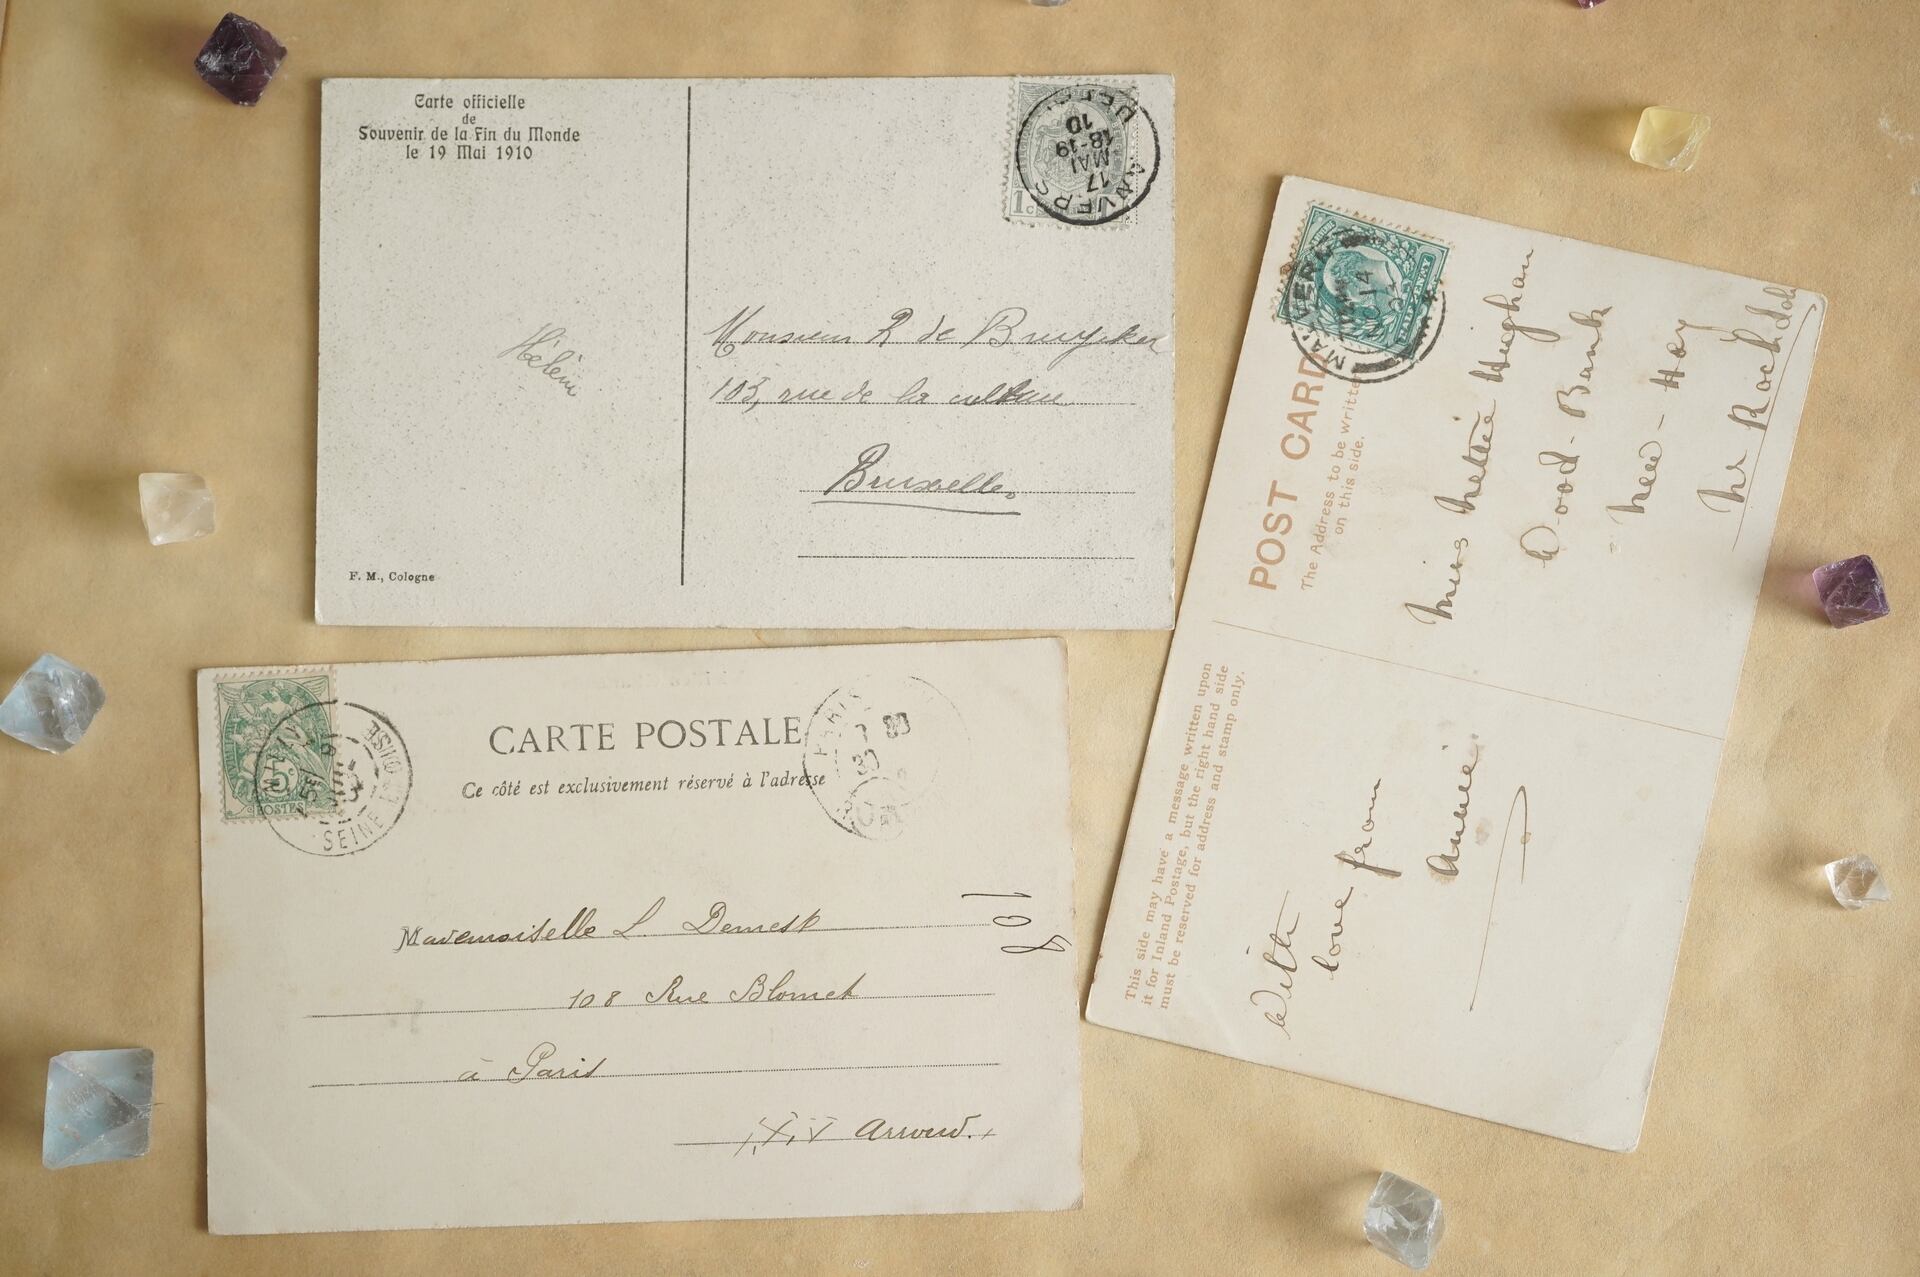 Carte officielle
de
Souvenir de la Fin du Monde
le 19 Mai 1910
Hélène
F. M., Cologne
1c
ANVERS
17
MAI
18-19
10
Monsieur R de Bruycker
103, rue de la culture
Bruxelles
CARTE POSTALE
Ce côté est exclusivement réservé à l'adresse
5c
POSTES
SEINE
OISE
PARIS
Mademoiselle L. Demest
108 Rue Blomet
à Paris
XV Arrond.
108
POST CARD
The Address to be written
on this side.
MALVERN
14
HALFPENNY
Miss Nettie Hughan
Wood-Bank
New-Hey
Nr Rochdale
This side may have a message written upon
it for Inland Postage, but the right hand side
must be reserved for address and stamp only.
With
love from
Annie.